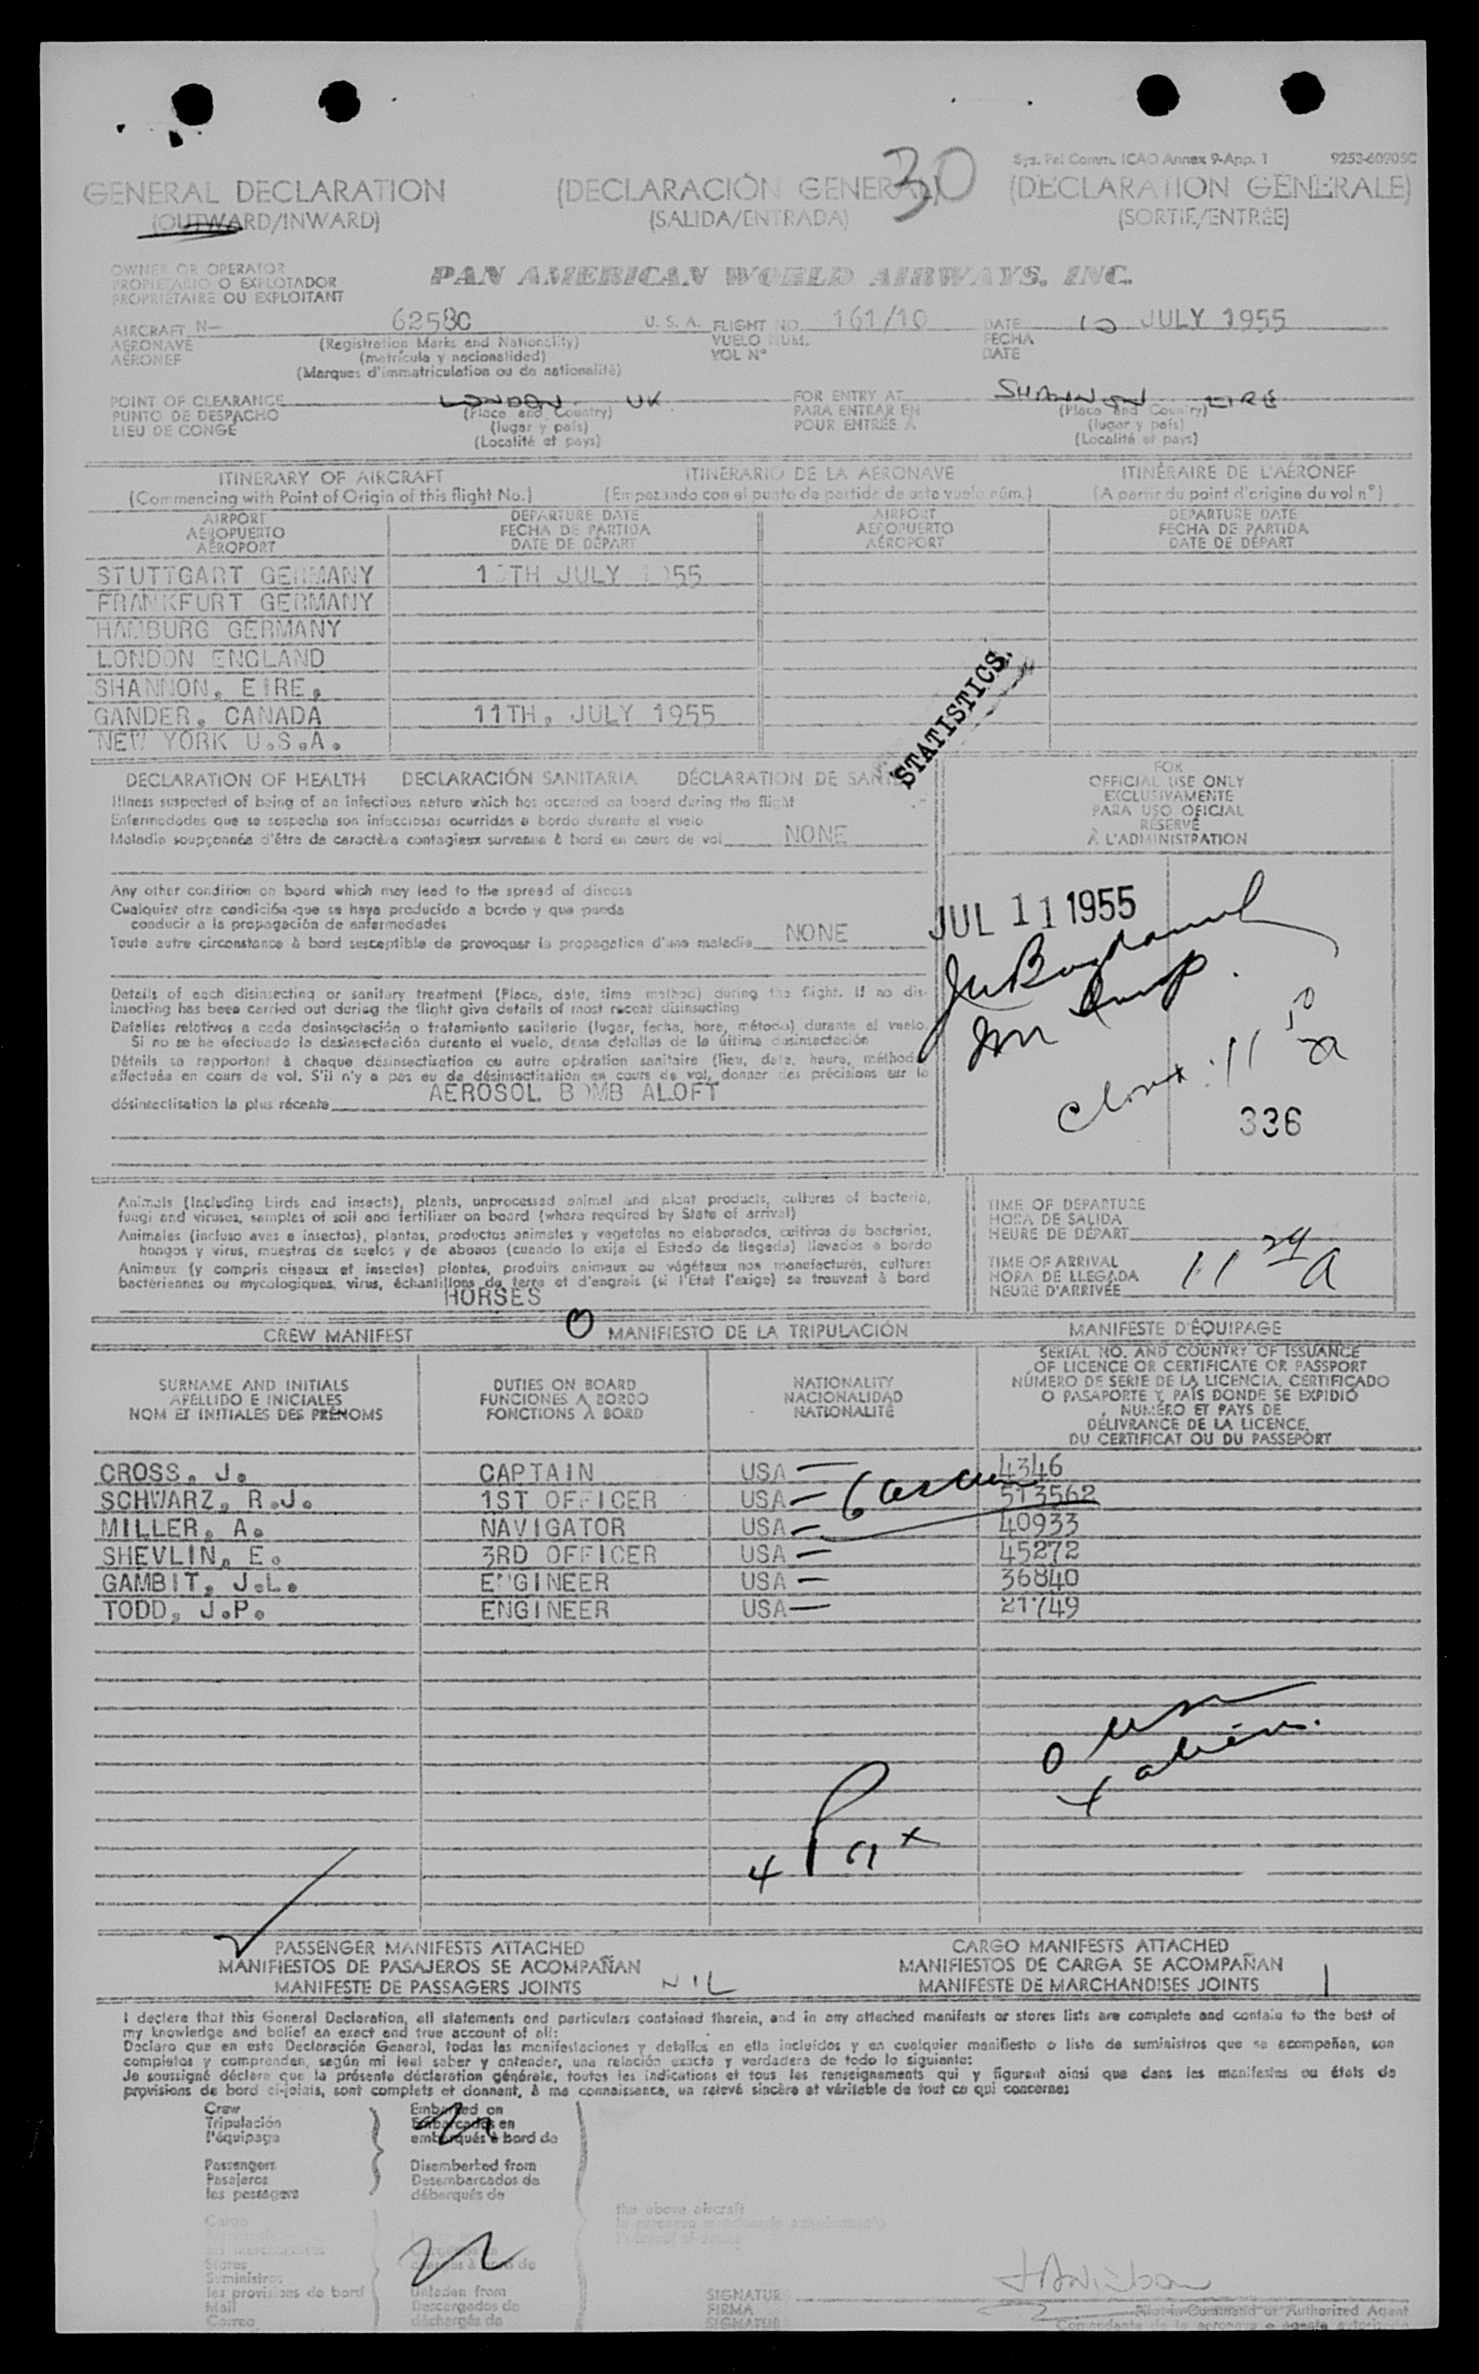 Sys. Pel Comm. ICAO Annex 9-App. 1 9253-60905C
30
GENERAL DECLARATION (DECLARACIÓN GENERAL) (DÉCLARATION GÉNÉRALE)
(OUTWARD/INWARD) (SALIDA/ENTRADA) (SORTIE/ENTRÉE)
OWNER OR OPERATOR
PROPIETARIO O EXPLOTADOR
PROPRIÉTAIRE OU EXPLOITANT
PAN AMERICAN WORLD AIRWAYS, INC.
AIRCRAFT N- 6258C U. S. A. FLIGHT NO. 161/10 DATE 10 JULY 1955
AERONAVE (Registration Marks and Nationality) VUELO NUM. FECHA
AÉRONEF (matrícula y nacionalidad) VOL N° DATE
(Marques d'immatriculation ou de nationalité)
POINT OF CLEARANCE LONDON UK FOR ENTRY AT SHANNON EIRE
PUNTO DE DESPACHO (Place and Country) PARA ENTRAR EN (Place and Country)
LIEU DE CONGÉ (lugar y país) POUR ENTRÉE À (lugar y país)
(Localité et pays) (Localité et pays)
ITINERARY OF AIRCRAFT ITINERARIO DE LA AERONAVE ITINÉRAIRE DE L'AÉRONEF
(Commencing with Point of Origin of this flight No.) (Empezando con el punto de partida de este vuelo núm.) (A partir du point d'origine du vol n°)
AIRPORT DEPARTURE DATE AIRPORT DEPARTURE DATE
AEROPUERTO FECHA DE PARTIDA AEROPUERTO FECHA DE PARTIDA
AÉROPORT DATE DE DÉPART AÉROPORT DATE DE DÉPART
STUTTGART GERMANY 10TH JULY 1955
FRANKFURT GERMANY
HAMBURG GERMANY
LONDON ENGLAND
SHANNON, EIRE,
GANDER, CANADA 11TH, JULY 1955
NEW YORK U.S.A.
STATISTICS.
DECLARATION OF HEALTH DECLARACIÓN SANITARIA DÉCLARATION DE SANTÉ
Illness suspected of being of an infectious nature which has occured on board during the flight
Enfermedades que se sospecha son infecciosas ocurridas a bordo durante el vuelo
Maladie soupçonnée d'être de caractère contagieux survenue à bord en cours de vol NONE
Any other condition on board which may lead to the spread of disease
Cualquier otra condición que se haya producido a bordo y que pueda
conducir a la propagación de enfermedades
Toute autre circonstance à bord susceptible de provoquer la propagation d'une maladie NONE
Details of each disinsecting or sanitary treatment (Place, date, time method) during the flight. If no dis-
insecting has been carried out during the flight give details of most recent disinsecting
Detalles relativos a cada desinsectación o tratamiento sanitario (lugar, fecha, hora, método) durante el vuelo.
Si no se ha efectuado la desinsectación durante el vuelo, dense detalles de la última desinsectación
Détails se rapportant à chaque désinsectisation ou autre opération sanitaire (lieu, date, heure, méthode)
effectuée en cours de vol. S'il n'y a pas eu de désinsectisation en cours de vol, donner des précisions sur la
désinsectisation la plus récente AEROSOL BOMB ALOFT
FOR
OFFICIAL USE ONLY
EXCLUSIVAMENTE
PARA USO OFICIAL
RÉSERVÉ
À L'ADMINISTRATION
JUL 11 1955
11 50 a
336
Animals (Including birds and insects), plants, unprocessed animal and plant products, cultures of bacteria,
fungi and viruses, samples of soil and fertilizer on board (where required by State of arrival)
Animales (incluso aves e insectos), plantas, productos animales y vegetales no elaborados, cultivos de bacterias,
hongos y virus, muestras de suelos y de abonos (cuando lo exija el Estado de llegada) llevados a bordo
Animaux (y compris oiseaux et insectes) plantes, produits animaux ou végétaux non manufacturés, cultures
bactériennes ou mycologiques, virus, échantillons de terre et d'engrais (si l'Etat l'exige) se trouvant à bord
HORSES
TIME OF DEPARTURE
HORA DE SALIDA
HEURE DE DÉPART
TIME OF ARRIVAL
HORA DE LLEGADA
HEURE D'ARRIVÉE 11 29 A
CREW MANIFEST MANIFIESTO DE LA TRIPULACIÓN MANIFESTE D'ÉQUIPAGE
SURNAME AND INITIALS
APELLIDO E INICIALES
NOM ET INITIALES DES PRÉNOMS
DUTIES ON BOARD
FUNCIONES A BORDO
FONCTIONS À BORD
NATIONALITY
NACIONALIDAD
NATIONALITÉ
SERIAL NO. AND COUNTRY OF ISSUANCE
OF LICENCE OR CERTIFICATE OR PASSPORT
NÚMERO DE SERIE DE LA LICENCIA, CERTIFICADO
O PASAPORTE Y PAÍS DONDE SE EXPIDIÓ
NUMÉRO ET PAYS DE
DÉLIVRANCE DE LA LICENCE,
DU CERTIFICAT OU DU PASSEPORT
CROSS, J. CAPTAIN USA 4346
SCHWARZ, R.J. 1ST OFFICER USA 513562
MILLER, A. NAVIGATOR USA 40933
SHEVLIN, E. 3RD OFFICER USA 45272
GAMBIT, J.L. ENGINEER USA 36840
TODD, J.P. ENGINEER USA 21749
4 Pax
PASSENGER MANIFESTS ATTACHED CARGO MANIFESTS ATTACHED
MANIFIESTOS DE PASAJEROS SE ACOMPAÑAN MANIFIESTOS DE CARGA SE ACOMPAÑAN
MANIFESTE DE PASSAGERS JOINTS NIL MANIFESTE DE MARCHANDISES JOINTS 1
I declare that this General Declaration, all statements and particulars contained therein, and in any attached manifests or stores lists are complete and contain to the best of
my knowledge and belief an exact and true account of all:
Declaro que en esta Declaración General, todas las manifestaciones y detalles en ella incluidos y en cualquier manifiesto o lista de suministros que se acompañan, son
completos y comprenden, según mi leal saber y entender, una relación exacta y verdadera de todo lo siguiente:
Je soussigné déclare que la présente déclaration générale, toutes les indications et tous les renseignements qui y figurent ainsi que dans les manifestes ou états de
provisions de bord ci-joints, sont complets et donnent, à ma connaissance, un relevé sincère et véritable de tout ce qui concerne:
Crew Embarked on
Tripulación Embarcados en
l'équipage embarqués à bord de
Passengers Disembarked from
Pasajeros Desembarcados de
les passagers débarqués de
the above aircraft
Cargo
Stores
Suministros
les provisions de bord Unladen from
Mail Descargados de
Correo déchargés de
SIGNATURE
FIRMA
SIGNATURE
Pilot-in-Command or Authorized Agent